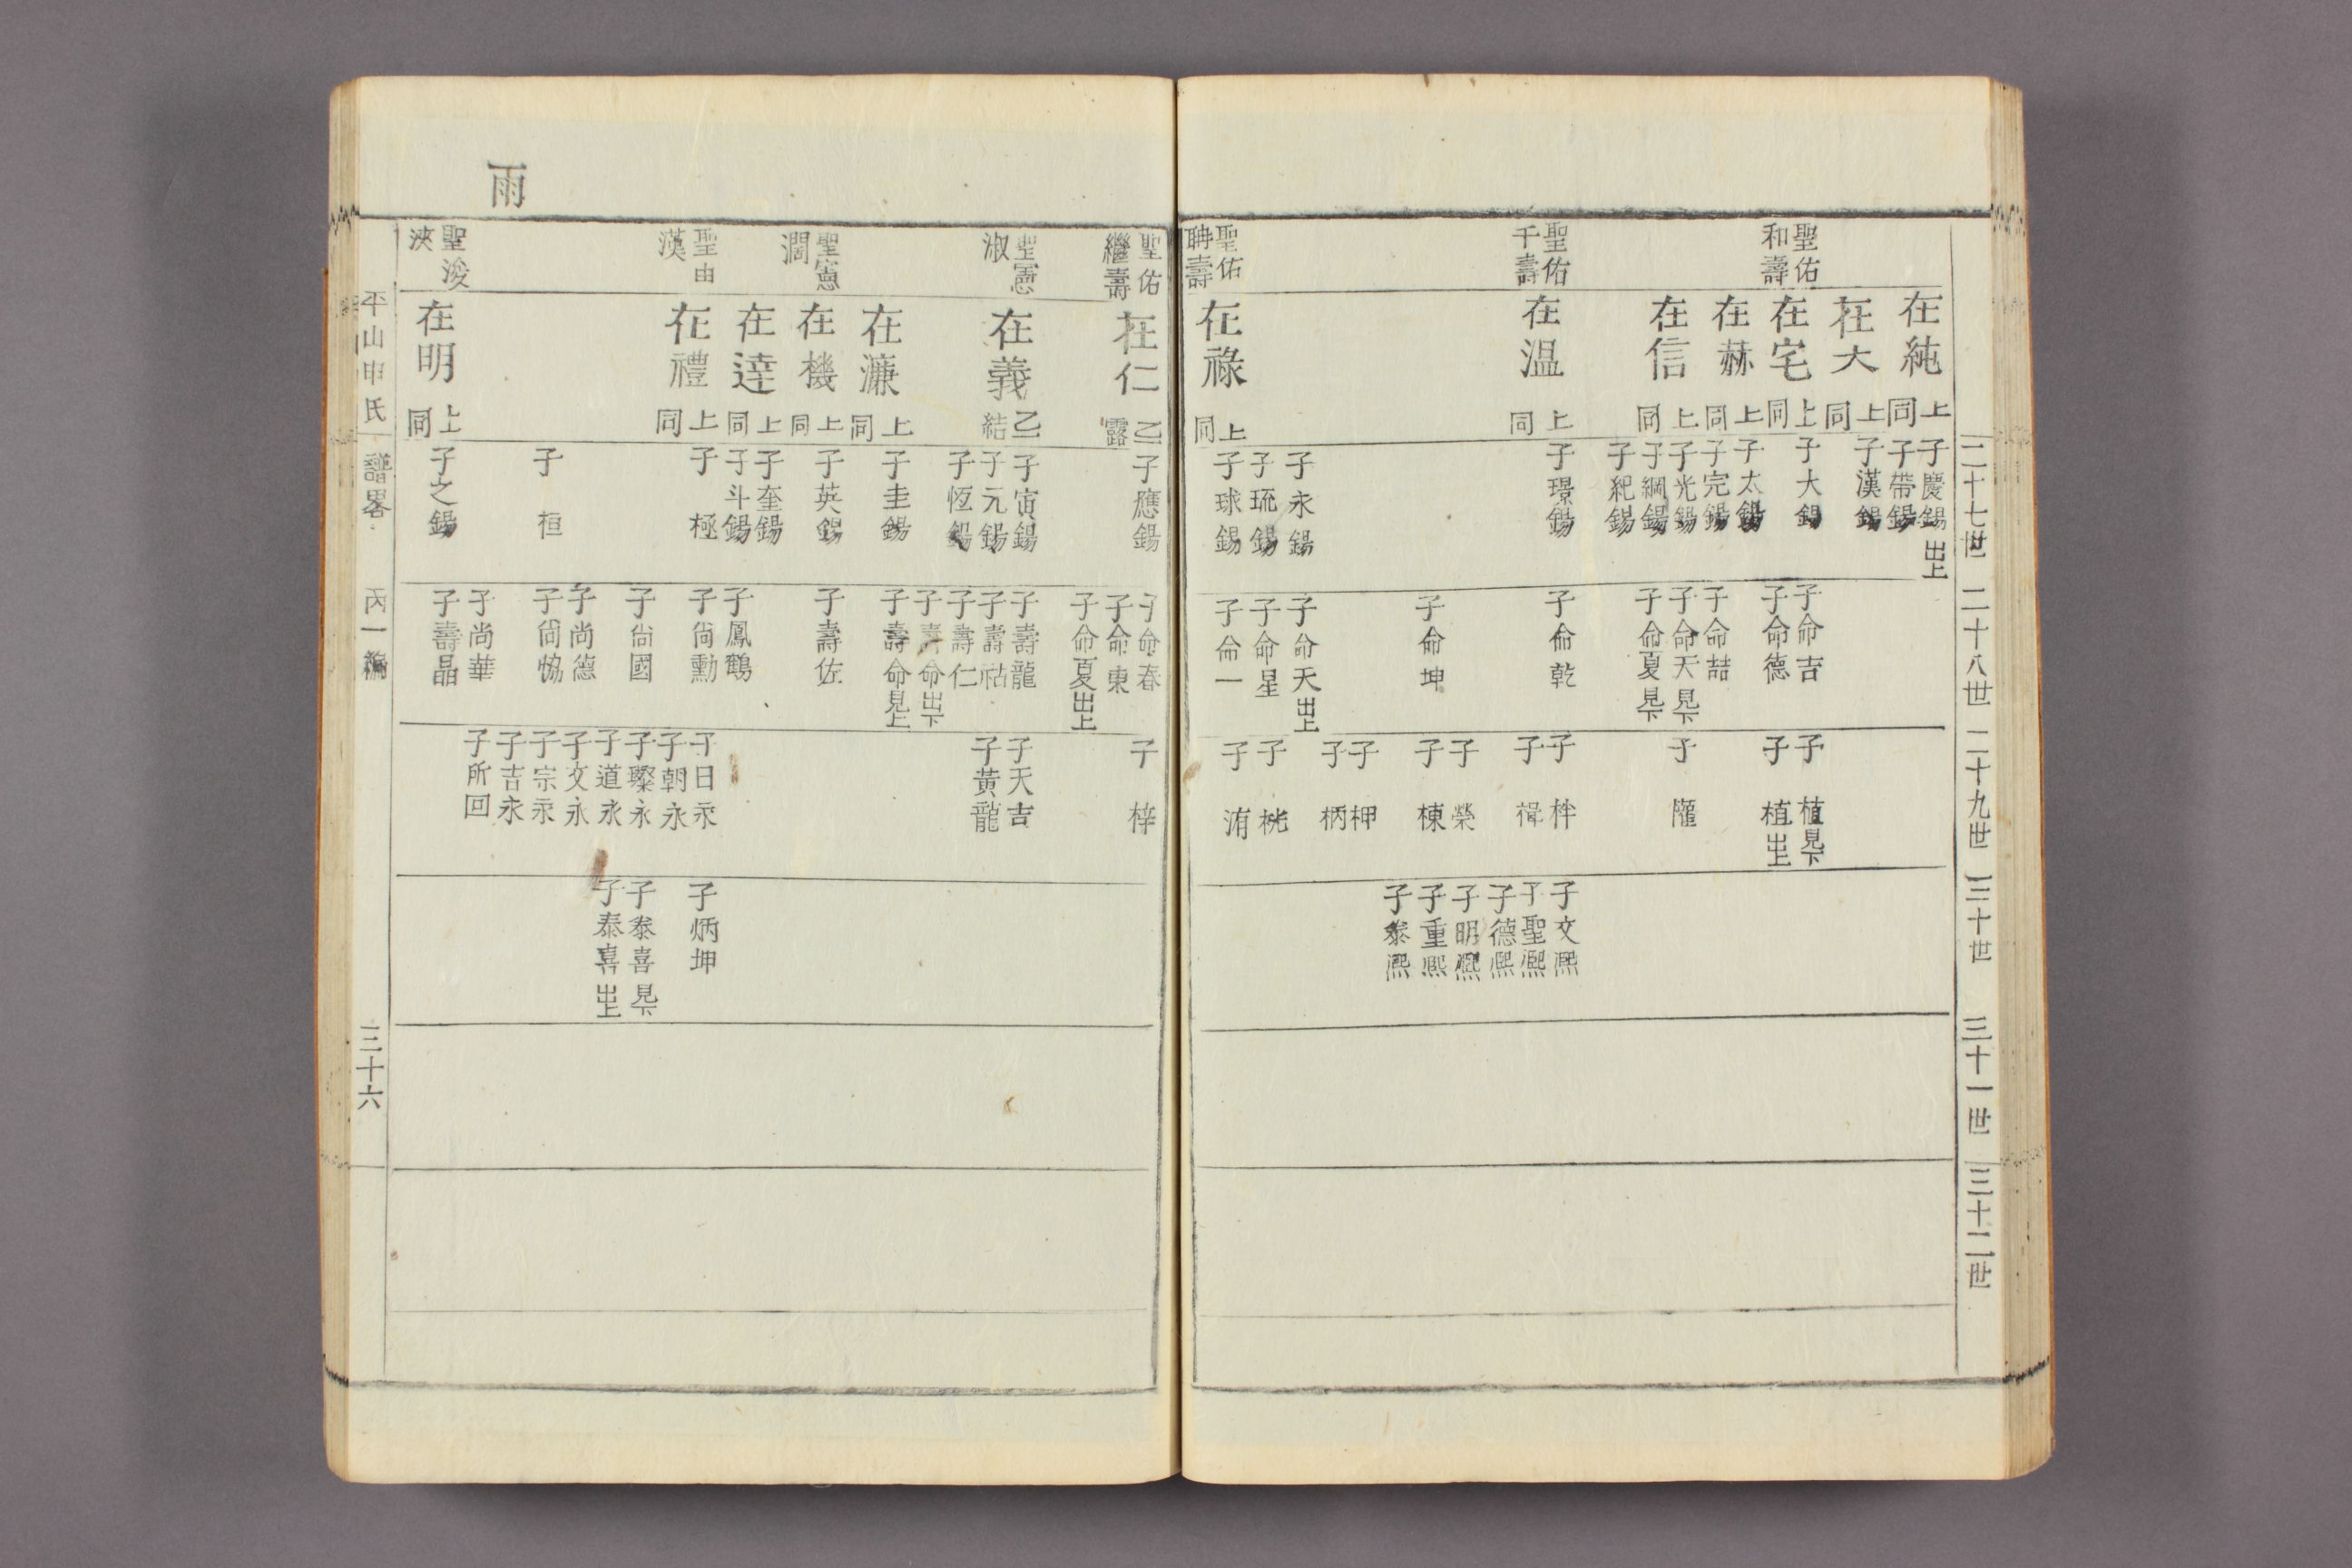 二十七世
二十八世
二十九世
三十世
三十一世
三十二世
聖佑
和壽
聖佑
千壽
聖佑
聃壽
在純 上同
在大 上同
在宅 上同
在赫 上同
在信 上同
在温 上同
在祿 上同
子慶錫出上
子帶錫
子漢錫
子大錫
子太錫
子完錫
子光錫
子綱錫
子紀錫
子璟錫
子永錫
子琉錫
子球錫
子命吉
子命德
子命喆
子命天見下
子命夏見下
子命乾
子命坤
子命天出上
子命星
子命一
子植見下
子植出上
子
子
子
子榮
子棟
子柙
子柄
子桃
子洧
子文熈
子聖熈
子德熈
子明熈
子重熈
子泰熈
雨
聖佑
繼壽
聖憲
淑
聖憲
濶
聖由
漢
聖浚
浹
在仁 乙露
在義 乙結
在濂 上同
在機 上同
在達 上同
在禮 上同
在明 上同
子應錫
子寅錫
子元錫
子恆錫
子圭錫
子英錫
子奎錫
子斗錫
子極
子桓
子之錫
子命春
子命東
子命夏出上
子壽龍
子壽祜
子壽仁
子壽命出下
子壽命見上
子壽佐
子鳳鶴
子尙勳
子尙國
子尚德
子尙
子尚華
子壽晶
子梓
子天吉
子黃龍
子日永
子朝永
子璨永
子道永
子文永
子宗永
子吉永
子所回
子炳坤
子泰喜見下
子泰喜出上
平山申氏
譜畧
丙一編
三十六